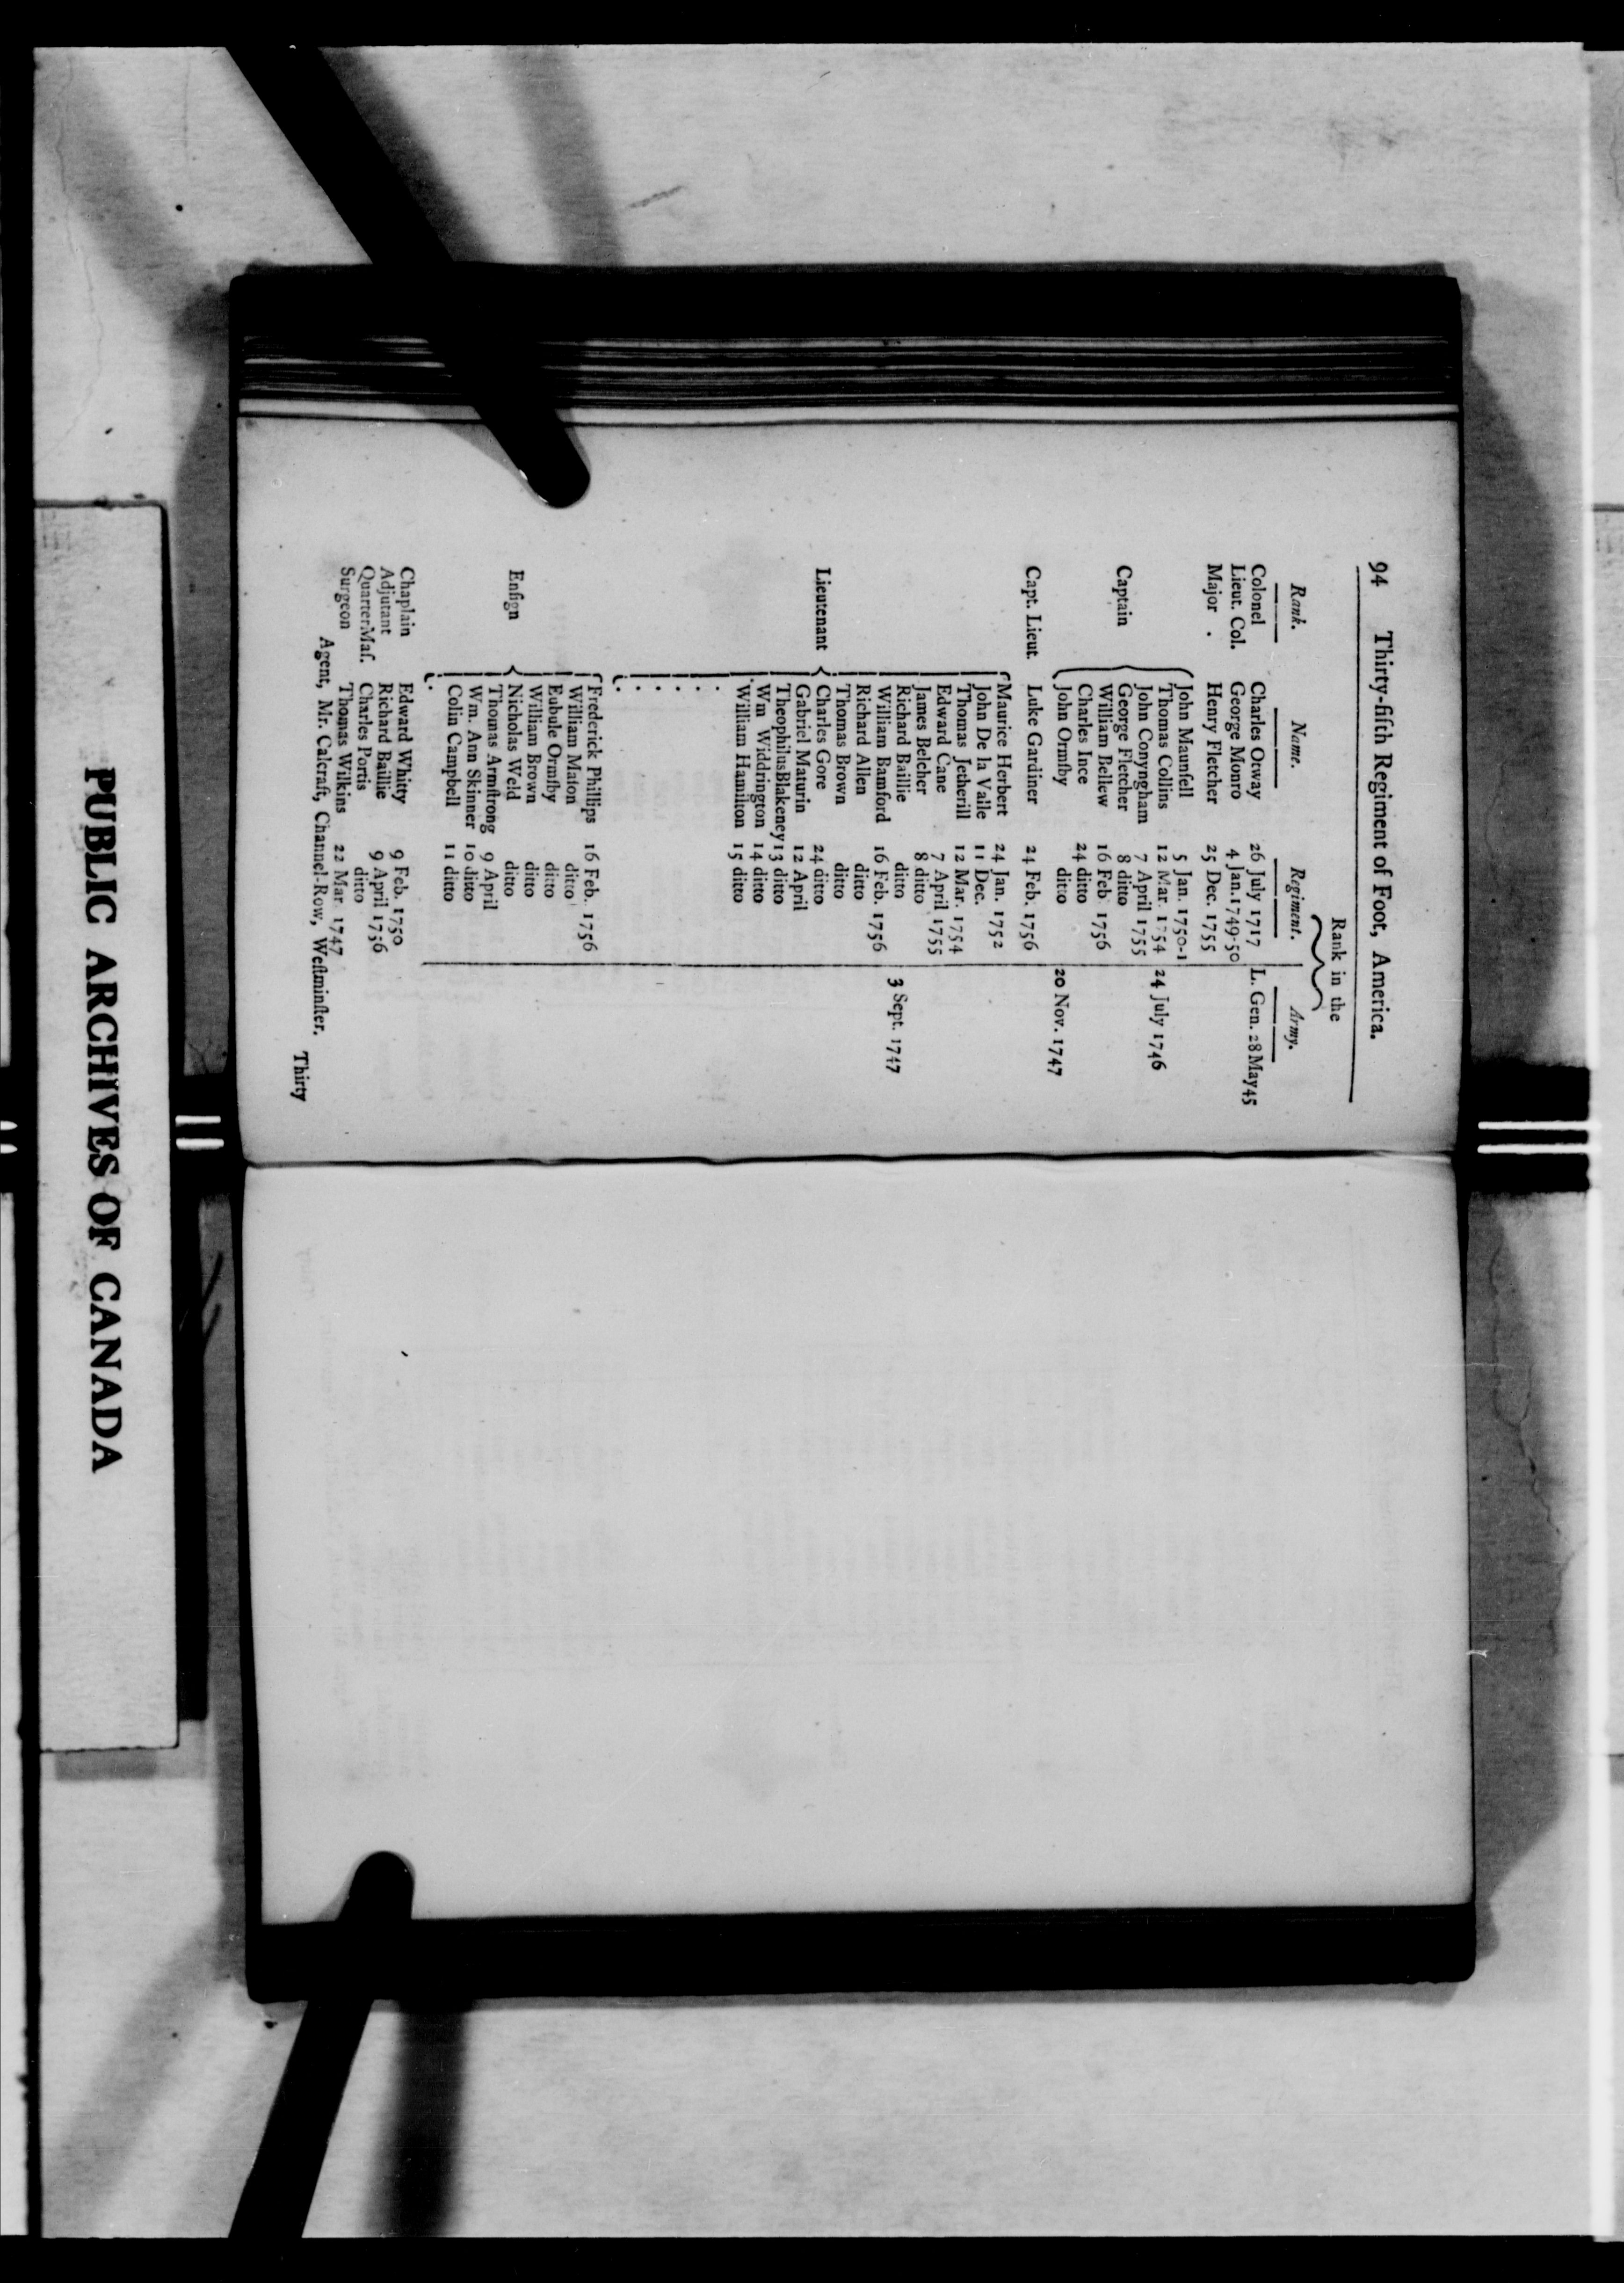 94 Thirty-fifth Regiment of Foot, America.
Rank in the
Rank. Name. Regiment. Army.
Colonel Charles Otway 26 July 1717 L. Gen. 28 May 45
Lieut. Col. George Monro 4 Jan. 1749-50
Major . Henry Fletcher 25 Dec. 1755
John Maunſell 5 Jan. 1750-1
Thomas Collins 12 Mar. 1754 24 July 1746
John Conyngham 7 April 1755
Captain George Fletcher 8 ditto
William Bellew 16 Feb. 1756
Charles Ince 24 ditto
John Ormſby ditto 20 Nov. 1747
Capt. Lieut. Luke Gardiner 24 Feb. 1756
Maurice Herbert 24 Jan. 1752
John De la Valle 11 Dec.
Thomas Jetherill 12 Mar. 1754
Edward Cane 7 April 1755
James Belcher 8 ditto
Richard Baillie ditto 3 Sept. 1747
William Bamford 16 Feb. 1756
Richard Allen ditto
Thomas Brown ditto
Lieutenant Charles Gore 24 ditto
Gabriel Maturin 12 April
Theophilus Blakeney 13 ditto
Wm Widdrington 14 ditto
William Hamilton 15 ditto
.
.
.
.
.
.
Frederick Phillips 16 Feb. 1756
William Maton ditto
Eubule Ormſby ditto
William Brown ditto
Enſign Nicholas Weld ditto
Thomas Armſtrong 9 April
Wm. Ann Skinner 10 ditto
Colin Campbell 11 ditto
.
Chaplain Edward Whitty 9 Feb. 1750
Adjutant Richard Baillie 9 April 1756
QuarterMaſ. Charles Portis ditto
Surgeon Thomas Wilkins 22 Mar. 1747
Agent, Mr. Calcraft, Channel-Row, Weſtminſter.
Thirty
PUBLIC ARCHIVES OF CANADA